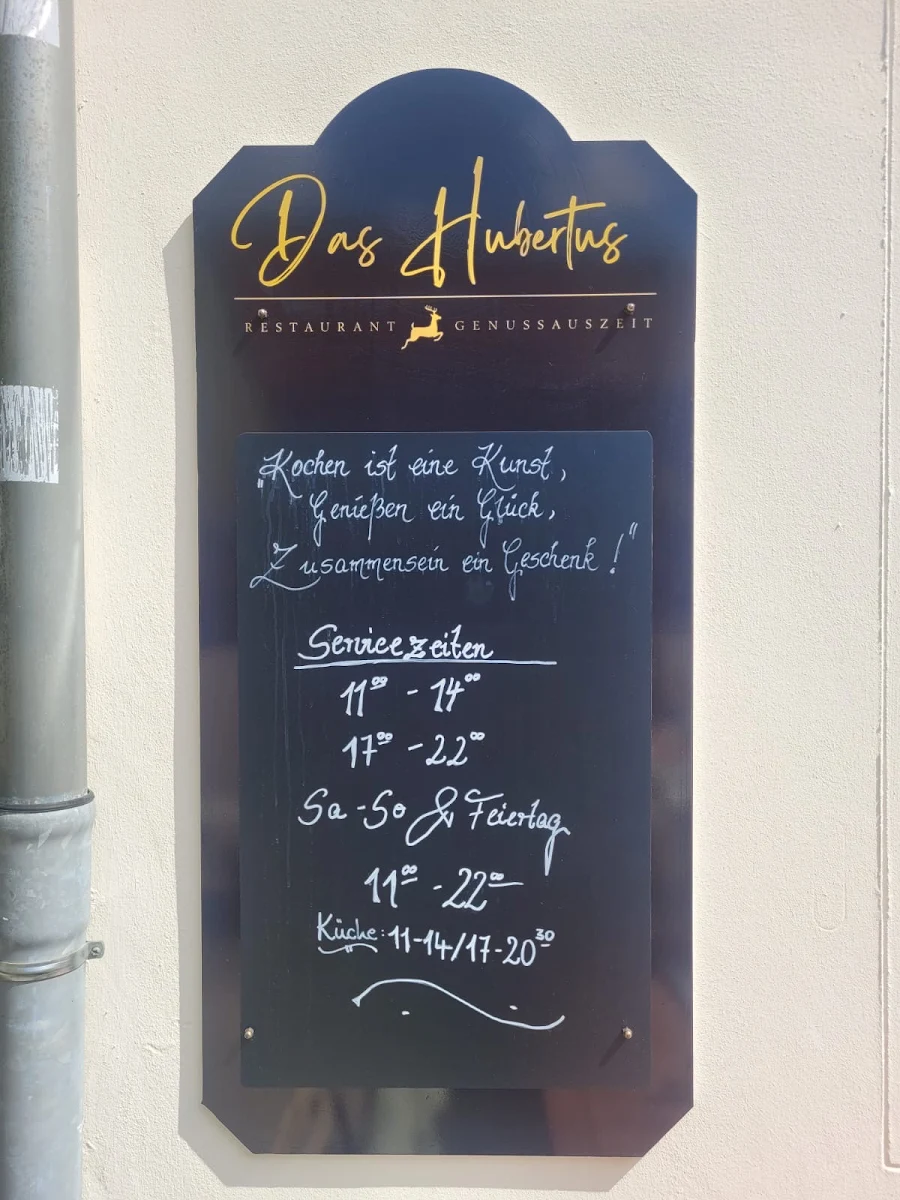 Das Hubertus
RESTAURANT GENUSSAUSZEIT
„Kochen ist eine Kunst,
Genießen ein Glück,
Zusammensein ein Geschenk!"
Servicezeiten
11⁰⁰ - 14⁰⁰
17⁰⁰ - 22⁰⁰
Sa - So & Feiertag
11⁰⁰ - 22⁰⁰
Küche: 11-14/17-20³⁰